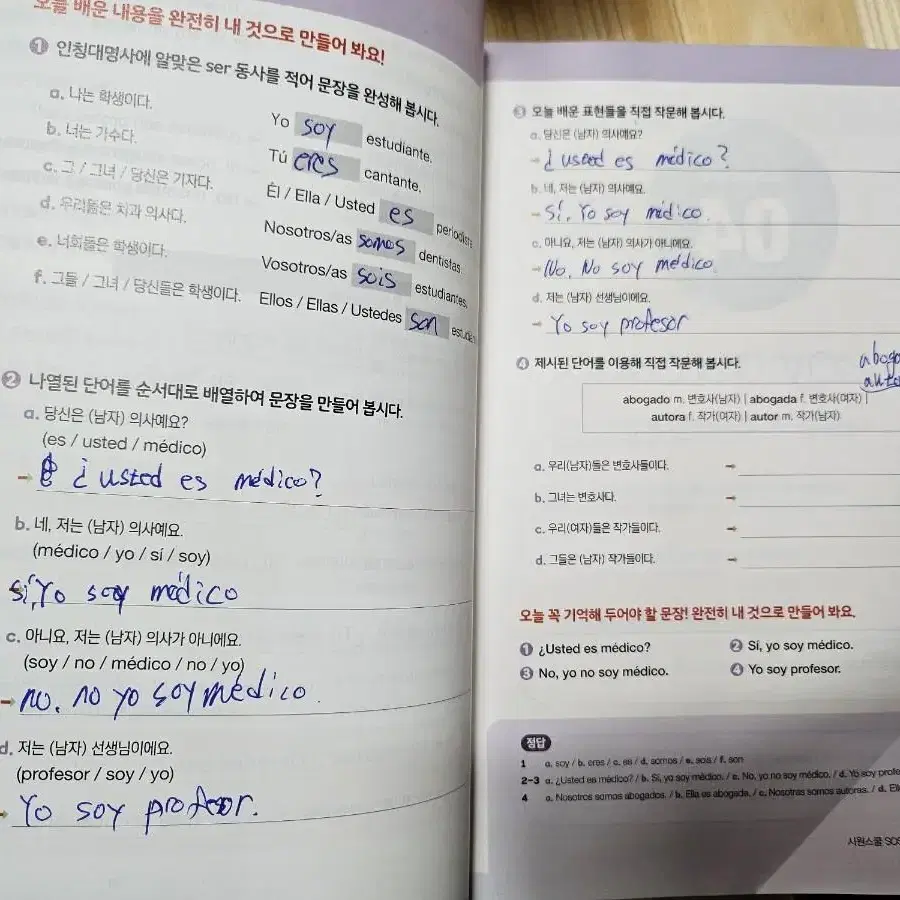 오늘 배운 내용을 완전히 내 것으로 만들어 봐요!
1 인칭대명사에 알맞은 ser 동사를 적어 문장을 완성해 봅시다.
a. 나는 학생이다.
Yo soy estudiante.
b. 너는 가수다.
Tú eres cantante.
c. 그 / 그녀 / 당신은 기자다.
Él / Ella / Usted es periodista
d. 우리들은 치과 의사다.
Nosotros/as somos dentistas.
e. 너희들은 학생이다.
Vosotros/as sois estudiantes.
f. 그들 / 그녀 / 당신들은 학생이다.
Ellos / Ellas / Ustedes son
2 나열된 단어를 순서대로 배열하여 문장을 만들어 봅시다.
a. 당신은 (남자) 의사예요?
(es / usted / médico)
→ ¿ usted es médico?
b. 네, 저는 (남자) 의사예요.
(médico / yo / sí / soy)
Sí, Yo soy médico
c. 아니요, 저는 (남자) 의사가 아니에요.
(soy / no / médico / no / yo)
→ no. no yo soy médico.
d. 저는 (남자) 선생님이에요.
(profesor / soy / yo)
→ Yo soy profesor.
3 오늘 배운 표현들을 직접 작문해 봅시다.
a. 당신은 (남자) 의사예요?
→ ¿ usted es médico?
b. 네, 저는 (남자) 의사예요.
→ Sí, Yo soy médico.
c. 아니요, 저는 (남자) 의사가 아니에요.
→ No, No soy médico.
d. 저는 (남자) 선생님이에요.
→ Yo soy profesor
4 제시된 단어를 이용해 직접 작문해 봅시다.
abogado m. 변호사(남자) | abogada f. 변호사(여자) |
autora f. 작가(여자) | autor m. 작가(남자)
a. 우리(남자)들은 변호사들이다. →
b. 그녀는 변호사다. →
c. 우리(여자)들은 작가들이다. →
d. 그들은 (남자) 작가들이다. →
오늘 꼭 기억해 두어야 할 문장! 완전히 내 것으로 만들어 봐요.
1 ¿Usted es médico? 2 Sí, yo soy médico.
3 No, yo no soy médico. 4 Yo soy profesor.
정답
1 a. soy / b. eres / c. es / d. somos / e. sois / f. son
2-3 a. ¿Usted es médico? / b. Sí, yo soy médico. / c. No, yo no soy médico. / d. Yo soy
4 a. Nosotros somos abogados. / b. Ella es abogada. / c. Nosotras somos autoras. / d.
시원스쿨